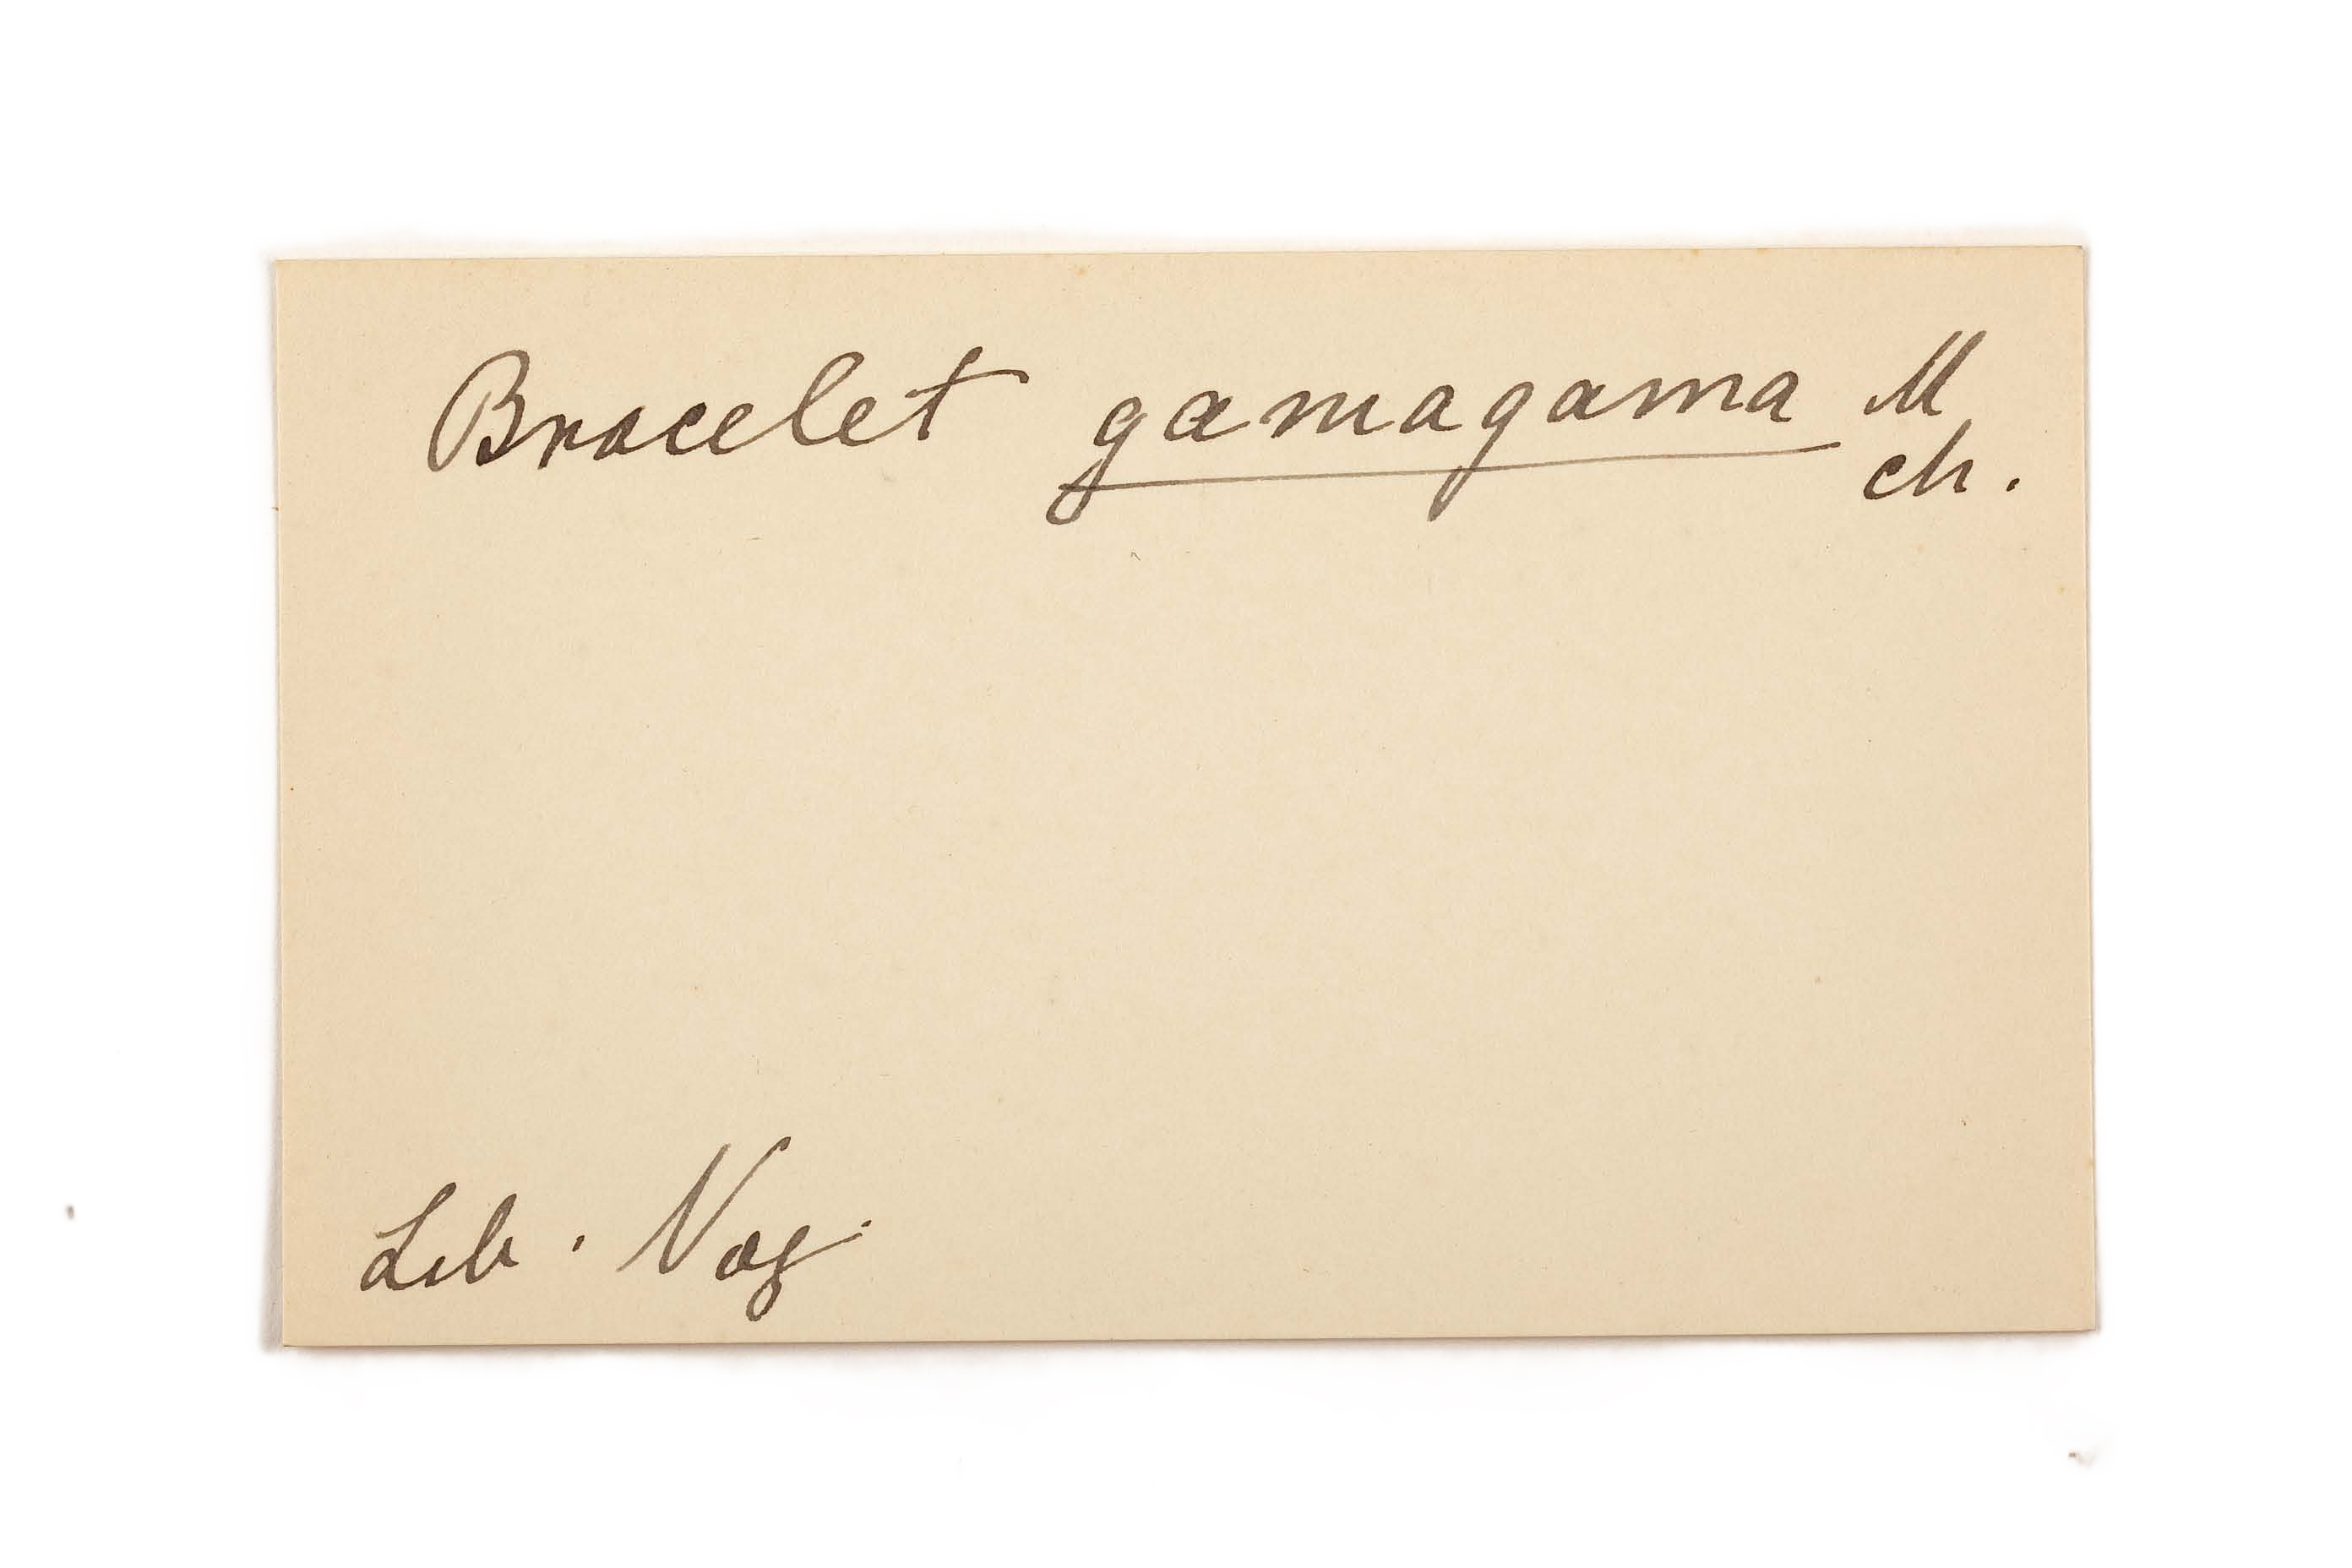 Bracelet gamagama M
ch.
Lib. Vog.